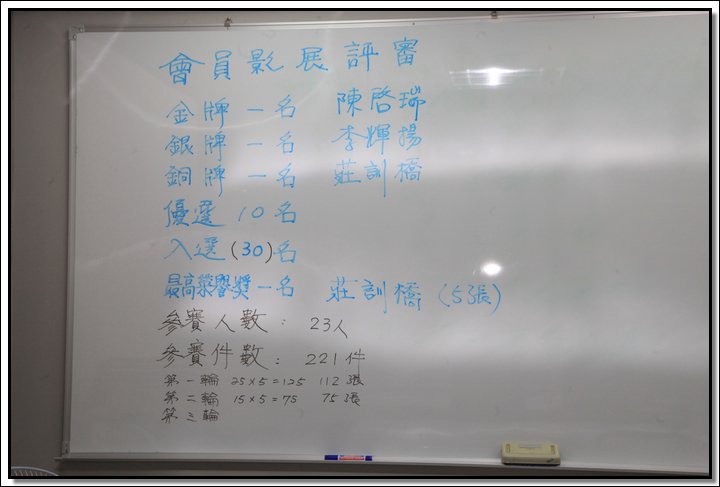 會員影展評審
金牌一名 陳啓瑞
銀牌一名 李輝揚
銅牌一名 莊訓橋
優選10名
入選(30)名
最高榮譽獎一名 莊訓橋(5張)
參賽人數: 23人
參賽件數: 221件
第一輪 25×5=125 112張
第二輪 15×5=75 75張
第三輪